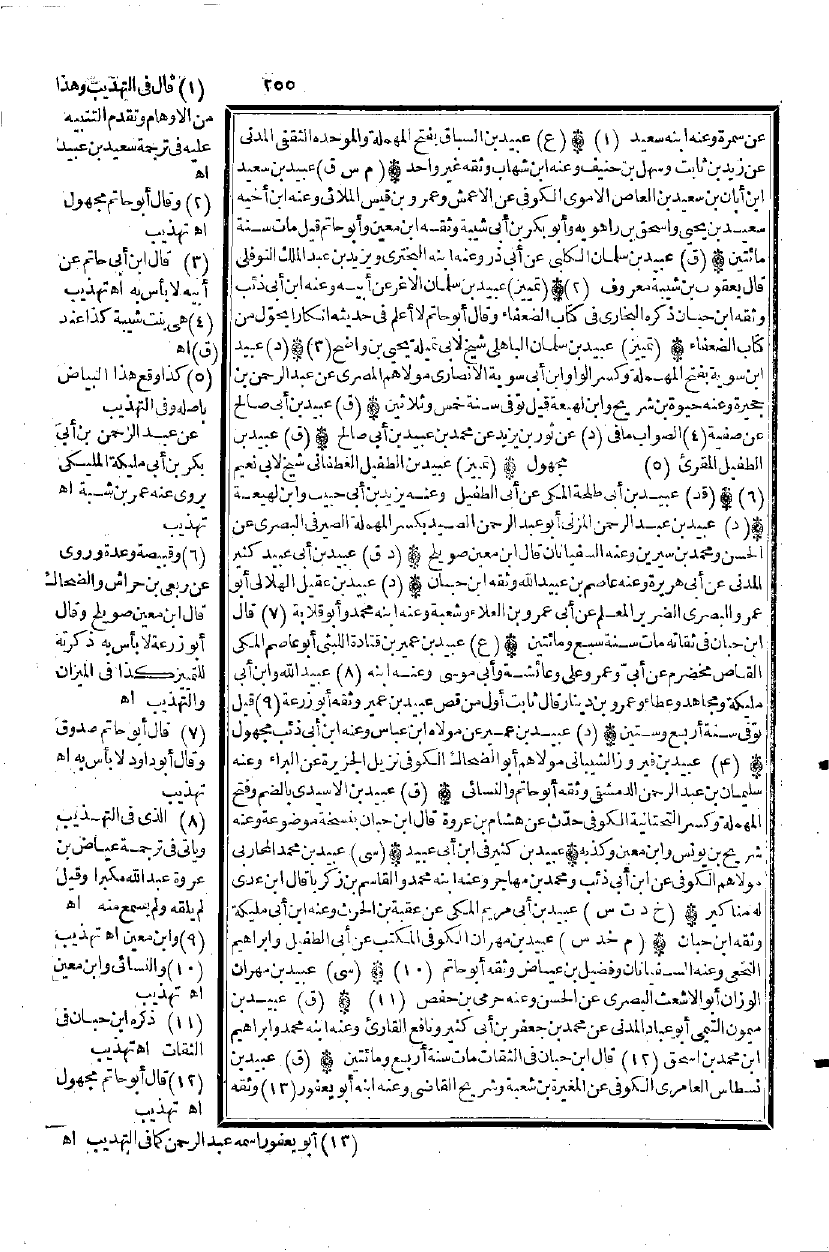 ٢٥٥
عن سمرة وعنه ابنه سعيد (١) ۞ (ع) عبيد بن السباق بفتح المهملة والموحدة الثقفي المدني
عن زيد بن ثابت وسهل بن حنيف وعنه ابن شهاب وثقه غير واحد ۞ (م س ق) عبيد بن سعيد
ابن أبان بن سعيد بن العاص الاموى الكوفى عن الاعمش وعمرو بن قيس الملائى وعنه ابن أخيه
سعيد بن يحيى واسحق بن راهويه وأبو بكر بن أبى شيبة وثقه ابن معين وأبو حاتم قيل مات سنة
مائتين ۞ (ق) عبيد بن سلمان الكلبى عن أبى ذر وعنه ابنه البخترى ويزيد بن عبد الملك النوفلى
قال يعقوب بن شيبة معروف (٢) ۞ (تمييز) عبيد بن سلمان الاغر عن أبيه وعنه ابن أبى ذئب
وثقه ابن حبان ذكره البخارى فى كتاب الضعفاء وقال أبو حاتم لا أعلم فى حديثه انكارا يحول من
كتاب الضعفاء ۞ (تمييز) عبيد بن سلمان الباهلى شيخ لابى تميلة يحيى بن واضح (٣) ۞ (د) عبيد
ابن سوية بفتح المهملة وكسر الواو ابن أبى سوية الأنصارى مولاهم المصرى عن عبد الرحمن بن
حجيرة وعنه حيوة بن شريح وابن لهيعة قيل توفى سنة خمس وثلاثين ۞ (ق) عبيد بن أبى صالح
عن صفية (٤) الصواب ما فى (د) عن ثور بن يزيد عن محمد بن عبيد بن أبى صالح ۞ (ق) عبيد بن
الطفيل المقرئ (٥) مجهول ۞ (تمييز) عبيد بن الطفيل الغطفانى شيخ لابى نعيم
(٦) ۞ (قد) عبيد بن أبى طلحة المكى عن أبى الطفيل وعنه يزيد بن أبى حبيب وابن لهيعة
۞ (د) عبيد بن عبد الرحمن المزنى أبو عبد الرحمن الصيد بكسر المهملة الصيرفى البصرى عن
الحسن ومحمد بن سيرين وعنه السفيانان قال ابن معين صويلح ۞ (د ق) عبيد بن أبى عبيد كثير
المدنى عن أبى هريرة وعنه عاصم بن عبيد الله وثقه ابن حبان ۞ (د) عبيد بن عقيل الهلالى أبو
عمرو البصرى الضرير المعلم عن أبى عمرو بن العلاء وشعبة وعنه ابنه محمد وأبو قلابة (٧) قال
ابن حبان فى ثقاته مات سنة سبع ومائتين ۞ (ع) عبيد بن عمير بن قتادة الليثى أبو عاصم المكى
القاص مخضرم عن أبىّ وعمر وعلى وعائشة وأبى موسى وعنه ابنه (٨) عبيد الله وابن أبى
مليكة ومجاهد وعطاء وعمرو بن دينار قال ثابت أول من قص عبيد بن عمير وثقه أبو زرعة (٩) قيل
توفى سنة أربع وستين ۞ (د) عبيد بن عمير عن مولاه ابن عباس وعنه ابن أبى ذئب مجهول
۞ (٤) عبيد بن فيروز الشيبانى مولاهم أبو الضحاك الكوفى نزيل الجزيرة عن البراء وعنه
سليمان بن عبد الرحمن الدمشقى وثقه أبو حاتم والنسائى ۞ (ق) عبيد بن الاسيدى بالضم وفتح
المهملة وكسر التحتانية الكوفى حدّث عن هشام بن عروة قال ابن حبان بنسخة موضوعة وعنه
شريح بن يونس وابن معين وكذبه ۞ عبيد بن كثير فى ابن أبى عبيد ۞ (سى) عبيد بن محمد المحاربى
مولاهم الكوفى عن ابن أبى ذئب ومحمد بن مهاجر وعنه ابنه محمد والقاسم بن زكريا قال ابن عدى
له مناكير ۞ (خ د ت س) عبيد بن أبى مريم المكى عن عقبة بن الحرث وعنه ابن أبى مليكة
وثقه ابن حبان ۞ (م خد س) عبيد بن مهران الكوفى المكتب عن أبى الطفيل وابراهيم
النخعى وعنه السفيانان وفضيل بن عياض وثقه أبو حاتم (١٠) ۞ (سى) عبيد بن مهران
الوزان أبو الاشعث البصرى عن الحسن وعنه حرمى بن حفص (١١) ۞ (ق) عبيد بن
ميمون التيمى أبو عباد المدنى عن محمد بن جعفر بن أبى كثير ونافع القارئ وعنه ابنه محمد وابراهيم
ابن محمد بن اسحق (١٢) قال ابن حبان فى الثقات مات سنة أربع ومائتين ۞ (ق) عبيد بن
نسطاس العامرى الكوفى عن المغيرة بن شعبة وشريح القاضى وعنه ابنه أبو يعفور (١٣) وثقه
(١) قال فى التهذيب وهذا
من الاوهام وتقدم التنبيه
عليه فى ترجمة سعيد بن عبيد
اه
(٢) وقال أبو حاتم مجهول
اه تهذيب
(٣) قال ابن أبى حاتم عن
أبيه لا بأس به اه تهذيب
(٤) هى بنت شيبة كذا عند
(ق) اه
(٥) كذا وقع هذا البياض
باصله وفى التهذيب
عن عبد الرحمن بن أبى
بكر بن أبى مليكة المليكى
يروى عنه عمر بن شبة اه
تهذيب
(٦) وقبيصة وعدة وروى
عن ربعى بن حراش والضحاك
قال ابن معين صويلح وقال
أبو زرعة لا بأس به ذكرته
للتمييز كذا فى الميزان
والتهذيب اه
(٧) قال أبو حاتم صدوق
وقال أبو داود لا بأس به اه
تهذيب
(٨) الذى فى التهذيب
ويأتى فى ترجمة عياض بن
عروة عبد الله مكبرا وقيل
لم يلقه ولم يسمع منه اه
(٩) وابن معين اه تهذيب
(١٠) والنسائى وابن معين
اه تهذيب
(١١) ذكره ابن حبان فى
الثقات اه تهذيب
(١٢) قال أبو حاتم مجهول
اه تهذيب
(١٣) أبو يعفور اسمه عبد الرحمن كما فى التهذيب اه